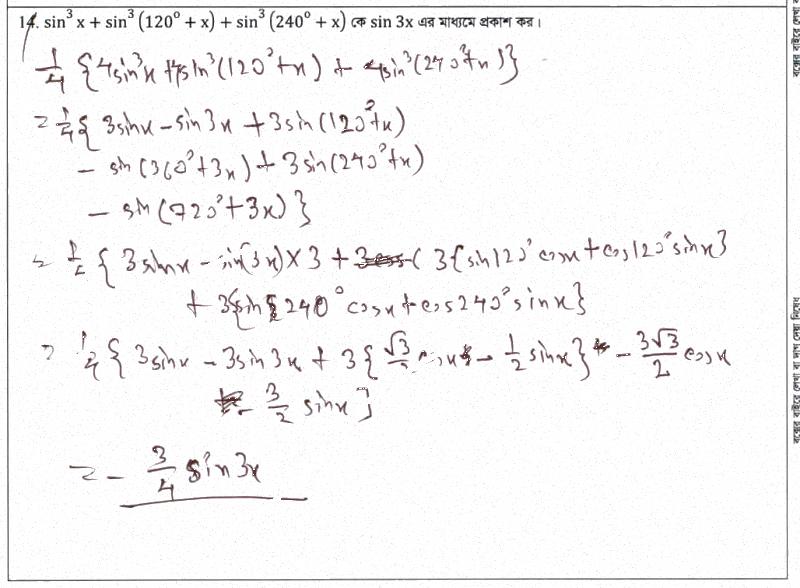 14. sin³ x + sin³ (120° + x) + sin³ (240° + x) কে sin 3x এর মাধ্যমে প্রকাশ কর।
1/4 {4sin³x + 4sin³(120°+x) + 4sin³(240°+x)}
= 1/4 { 3sinx - sin3x + 3sin(120°+x)
- sin(360°+3x) + 3sin(240°+x)
- sin(720°+3x)}
= 1/4 { 3sinx - sin(3x)×3 + 3{sin120°cosx + cos120°sinx}
+ 3{sin240°cosx + cos240°sinx}
= 1/4 { 3sinx - 3sin3x + 3{√3/2 cosx - 1/2 sinx} - 3√3/2 cosx
- 3/2 sinx}
= - 3/4 sin3x